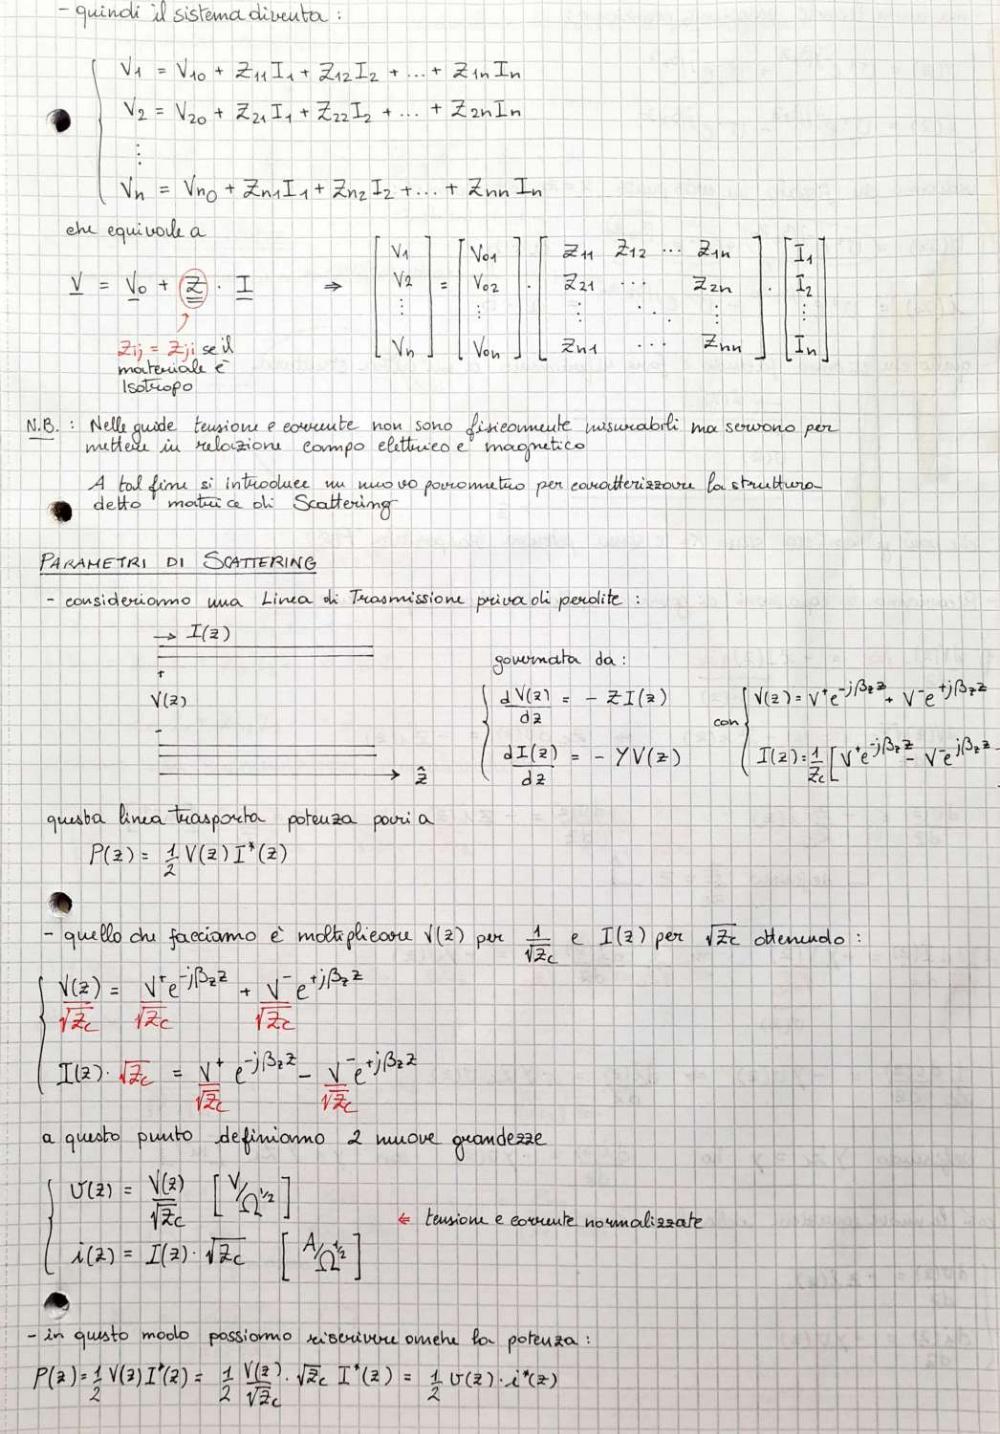 - quindi il sistema diventa :
V1 = V10 + Z11 I1 + Z12 I2 + ... + Z1n In
V2 = V20 + Z21 I1 + Z22 I2 + ... + Z2n In
⋮
Vn = Vn0 + Zn1 I1 + Zn2 I2 + ... + Znn In
che equivale a
V = V0 + Z · I ⇒ [V1 V2 ⋮ Vn] = [V01 V02 ⋮ V0n] · [Z11 Z12 ... Z1n; Z21 ... Z2n; ⋮ ⋱ ⋮; Zn1 ... Znn] · [I1 I2 ⋮ In]
Zij = Zji se il
materiale è
Isotropo
N.B. : Nelle guide tensione e corrente non sono fisicamente misurabili ma servono per
mettere in relazione campo elettrico e magnetico
A tal fine si introduce un nuovo parametro per caratterizzare la struttura
detto matrice di Scattering
PARAMETRI DI SCATTERING
- consideriamo una Linea di Trasmissione priva di perdite :
→ I(z)
+
V(z)
-
ẑ
governata da :
dV(z)/dz = - Z I(z)
dI(z)/dz = - Y V(z)
con
V(z) = V⁺e^-jβz z + V⁻e^+jβz z
I(z) = 1/Zc [V⁺e^-jβz z - V⁻e^jβz z
questa linea trasporta potenza pari a
P(z) = 1/2 V(z) I*(z)
- quello che facciamo è moltiplicare V(z) per 1/√Zc e I(z) per √Zc ottenendo :
V(z)/√Zc = V⁺/√Zc e^-jβz z + V⁻/√Zc e^+jβz z
I(z) · √Zc = V⁺/√Zc e^-jβz z - V⁻/√Zc e^+jβz z
a questo punto definiamo 2 nuove grandezze
v(z) = V(z)/√Zc [V/Ω^1/2]
← tensione e corrente normalizzate
i(z) = I(z) · √Zc [A/Ω^1/2]
- in questo modo possiamo riscrivere anche la potenza :
P(z) = 1/2 V(z) I*(z) = 1/2 V(z)/√Zc · √Zc I*(z) = 1/2 v(z) · i*(z)